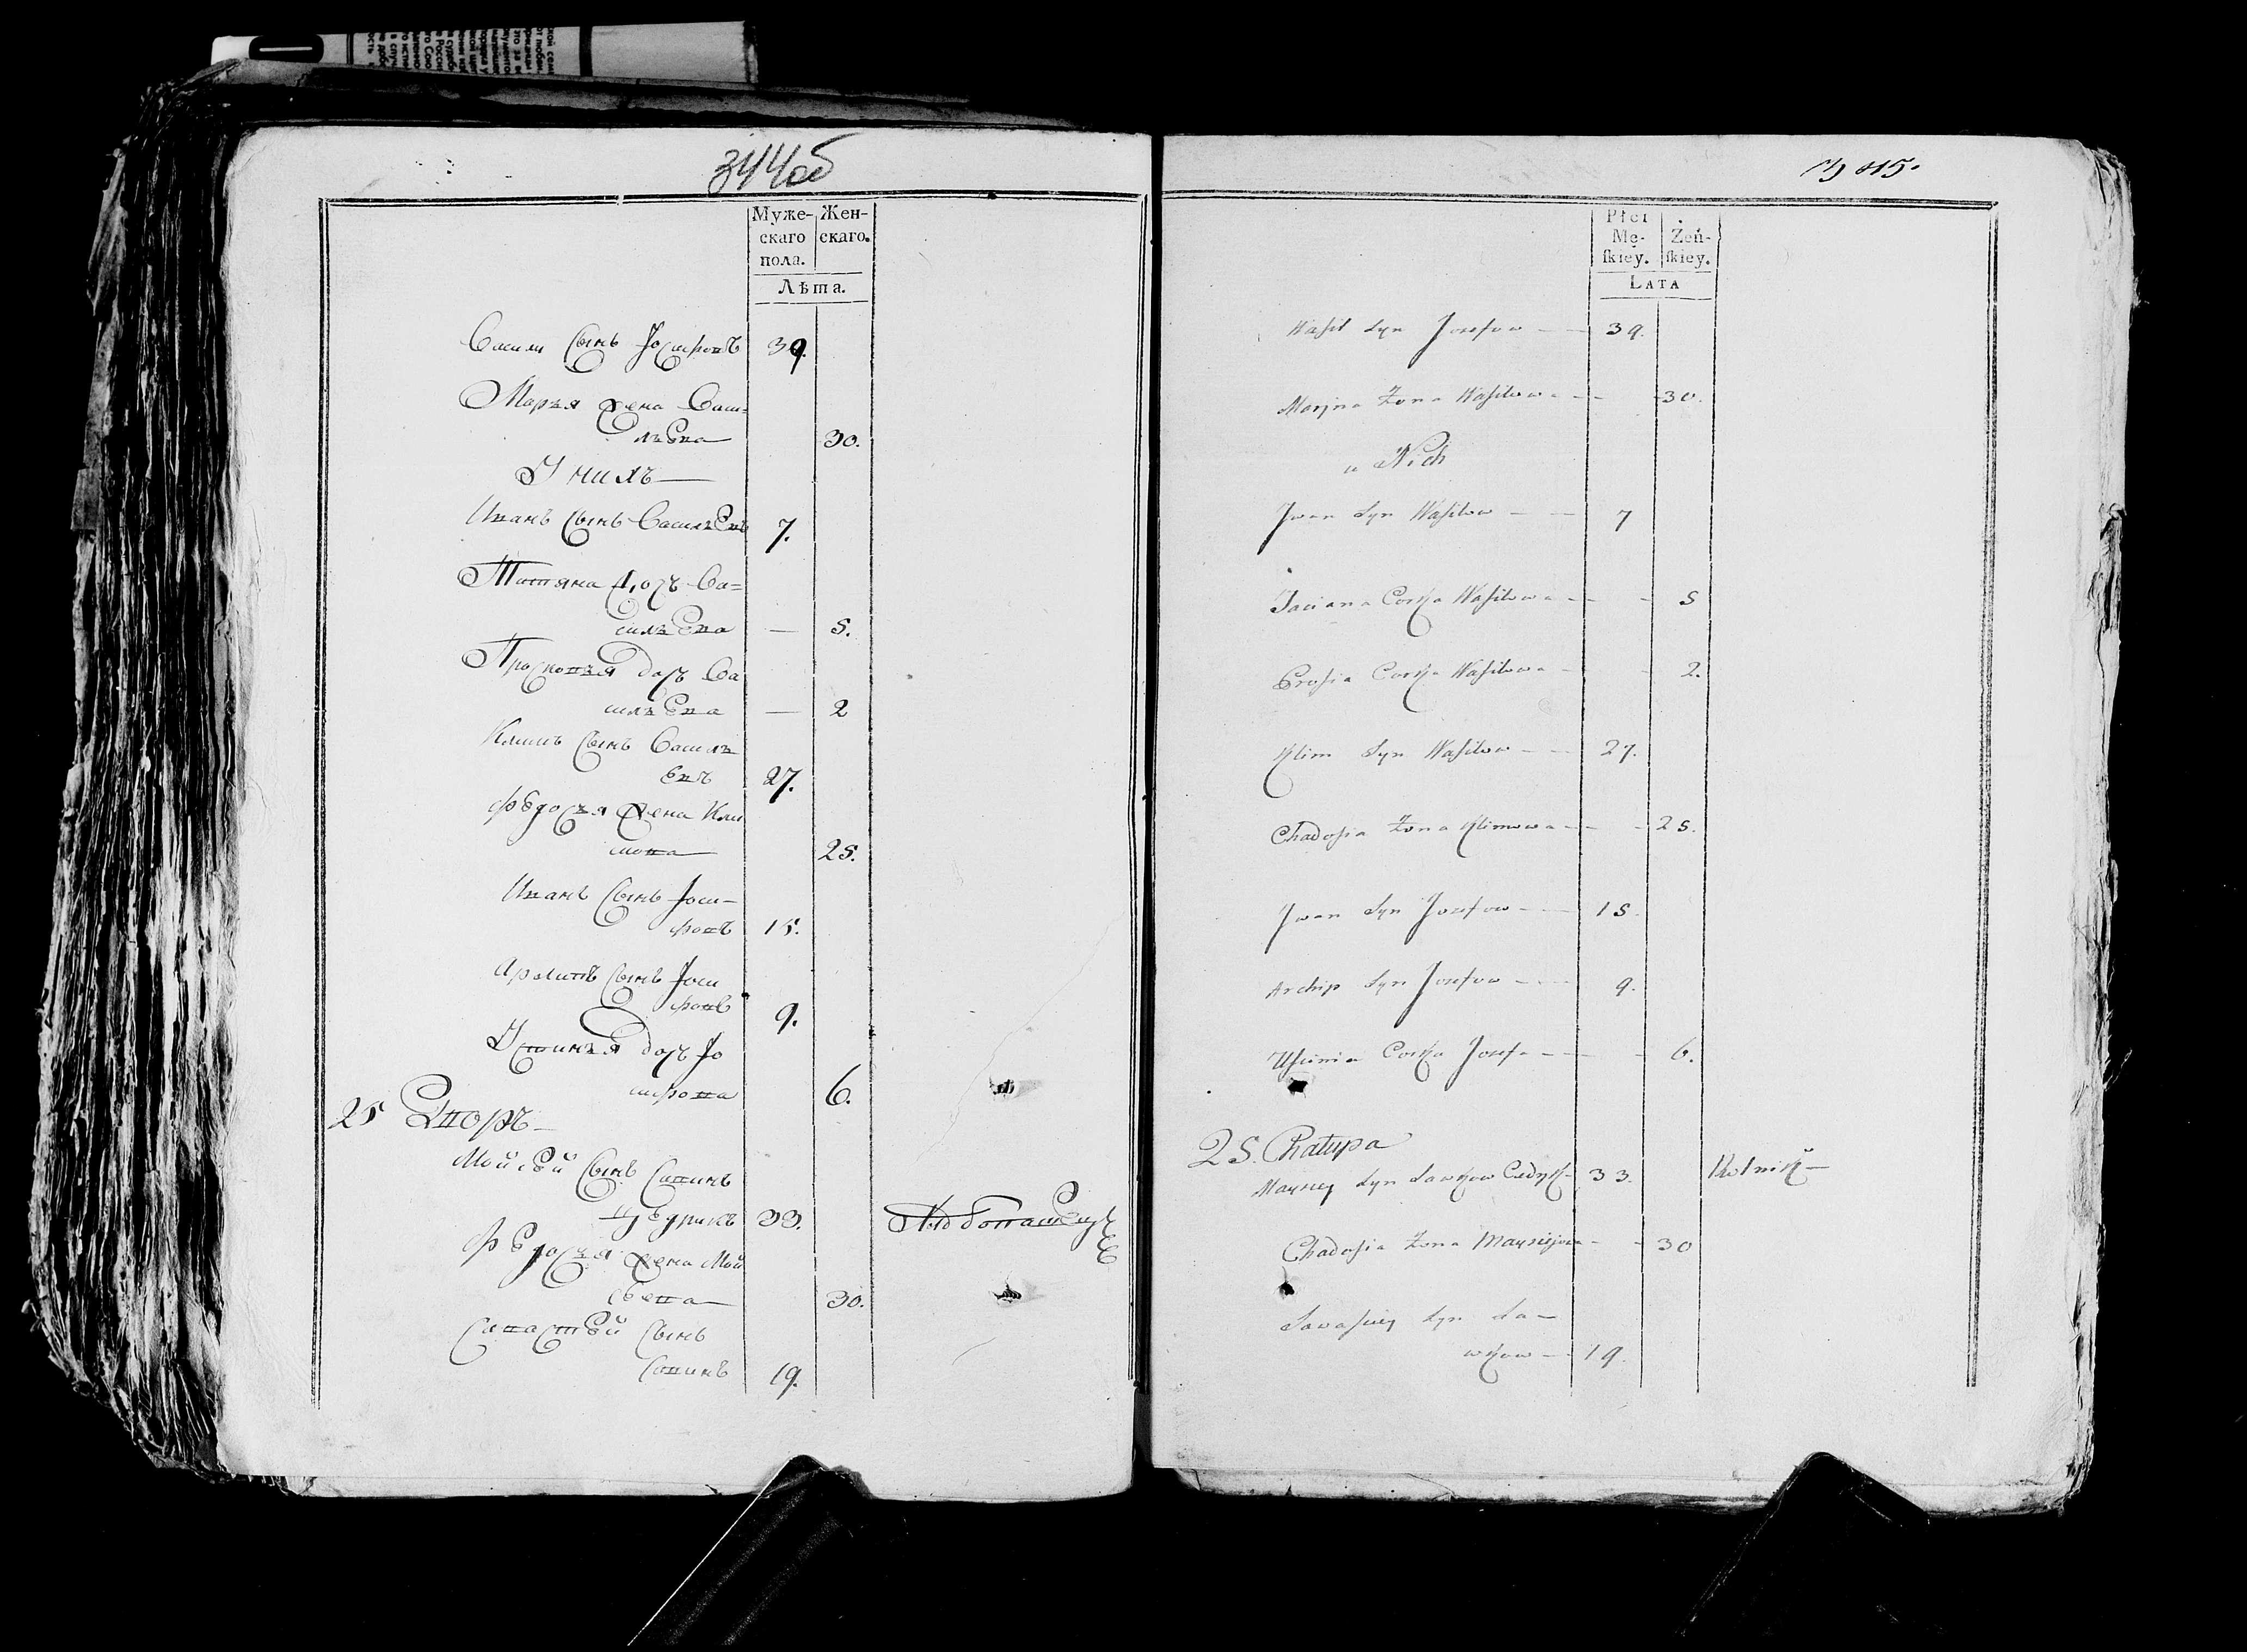 344об
Муже- Жен-
скаго скаго.
пола.
Лѣта.
Василь Сынъ Іосифовъ 39
Марья жена Васи=
льева 30.
У нихъ
Иванъ Сынъ Васильевъ 7.
Татяна дочь Ва=
сильева — 5.
Просковья дочь Ва
сильева — 2
Климъ Сынъ Василь
евъ 27.
Федосья жена Кли
мова 25.
Иванъ Сынъ Іоси-
фовъ 15.
Архипъ Сынъ Іоси
фовъ 9.
Устинья дочь Іо
сифова 6.
25 Дворъ
Мойсей Сынъ Савинъ
33.
Федосья жена Мой
сеева 30.
Савастей Сынъ
Савинъ 19.
345.
Płci
Mę- Żeń-
ſkiey. ſkiey.
LATA
Wasil Syn Jozefow — 39.
Maryna Zona Wasilowa — 30.
u Nich
Jwan Syn Wasilow — 7
Taciana Corka Wasilowa — 5
Prosia Corka Wasilowa — 2.
Klim Syn Wasilow — 27.
Chadosia Zona Klimowa — 25.
Jwan Syn Jozefow — 15
Archip Syn Jozefow — 9.
Uscinia Corka Jozefa — 6.
25. Chatupa
Maysiey Syn Sawkow 33. Rolnik
Chadosia Zona Maysiejowa — 30
Sawasciey Syn Sa—
wkow — 19.